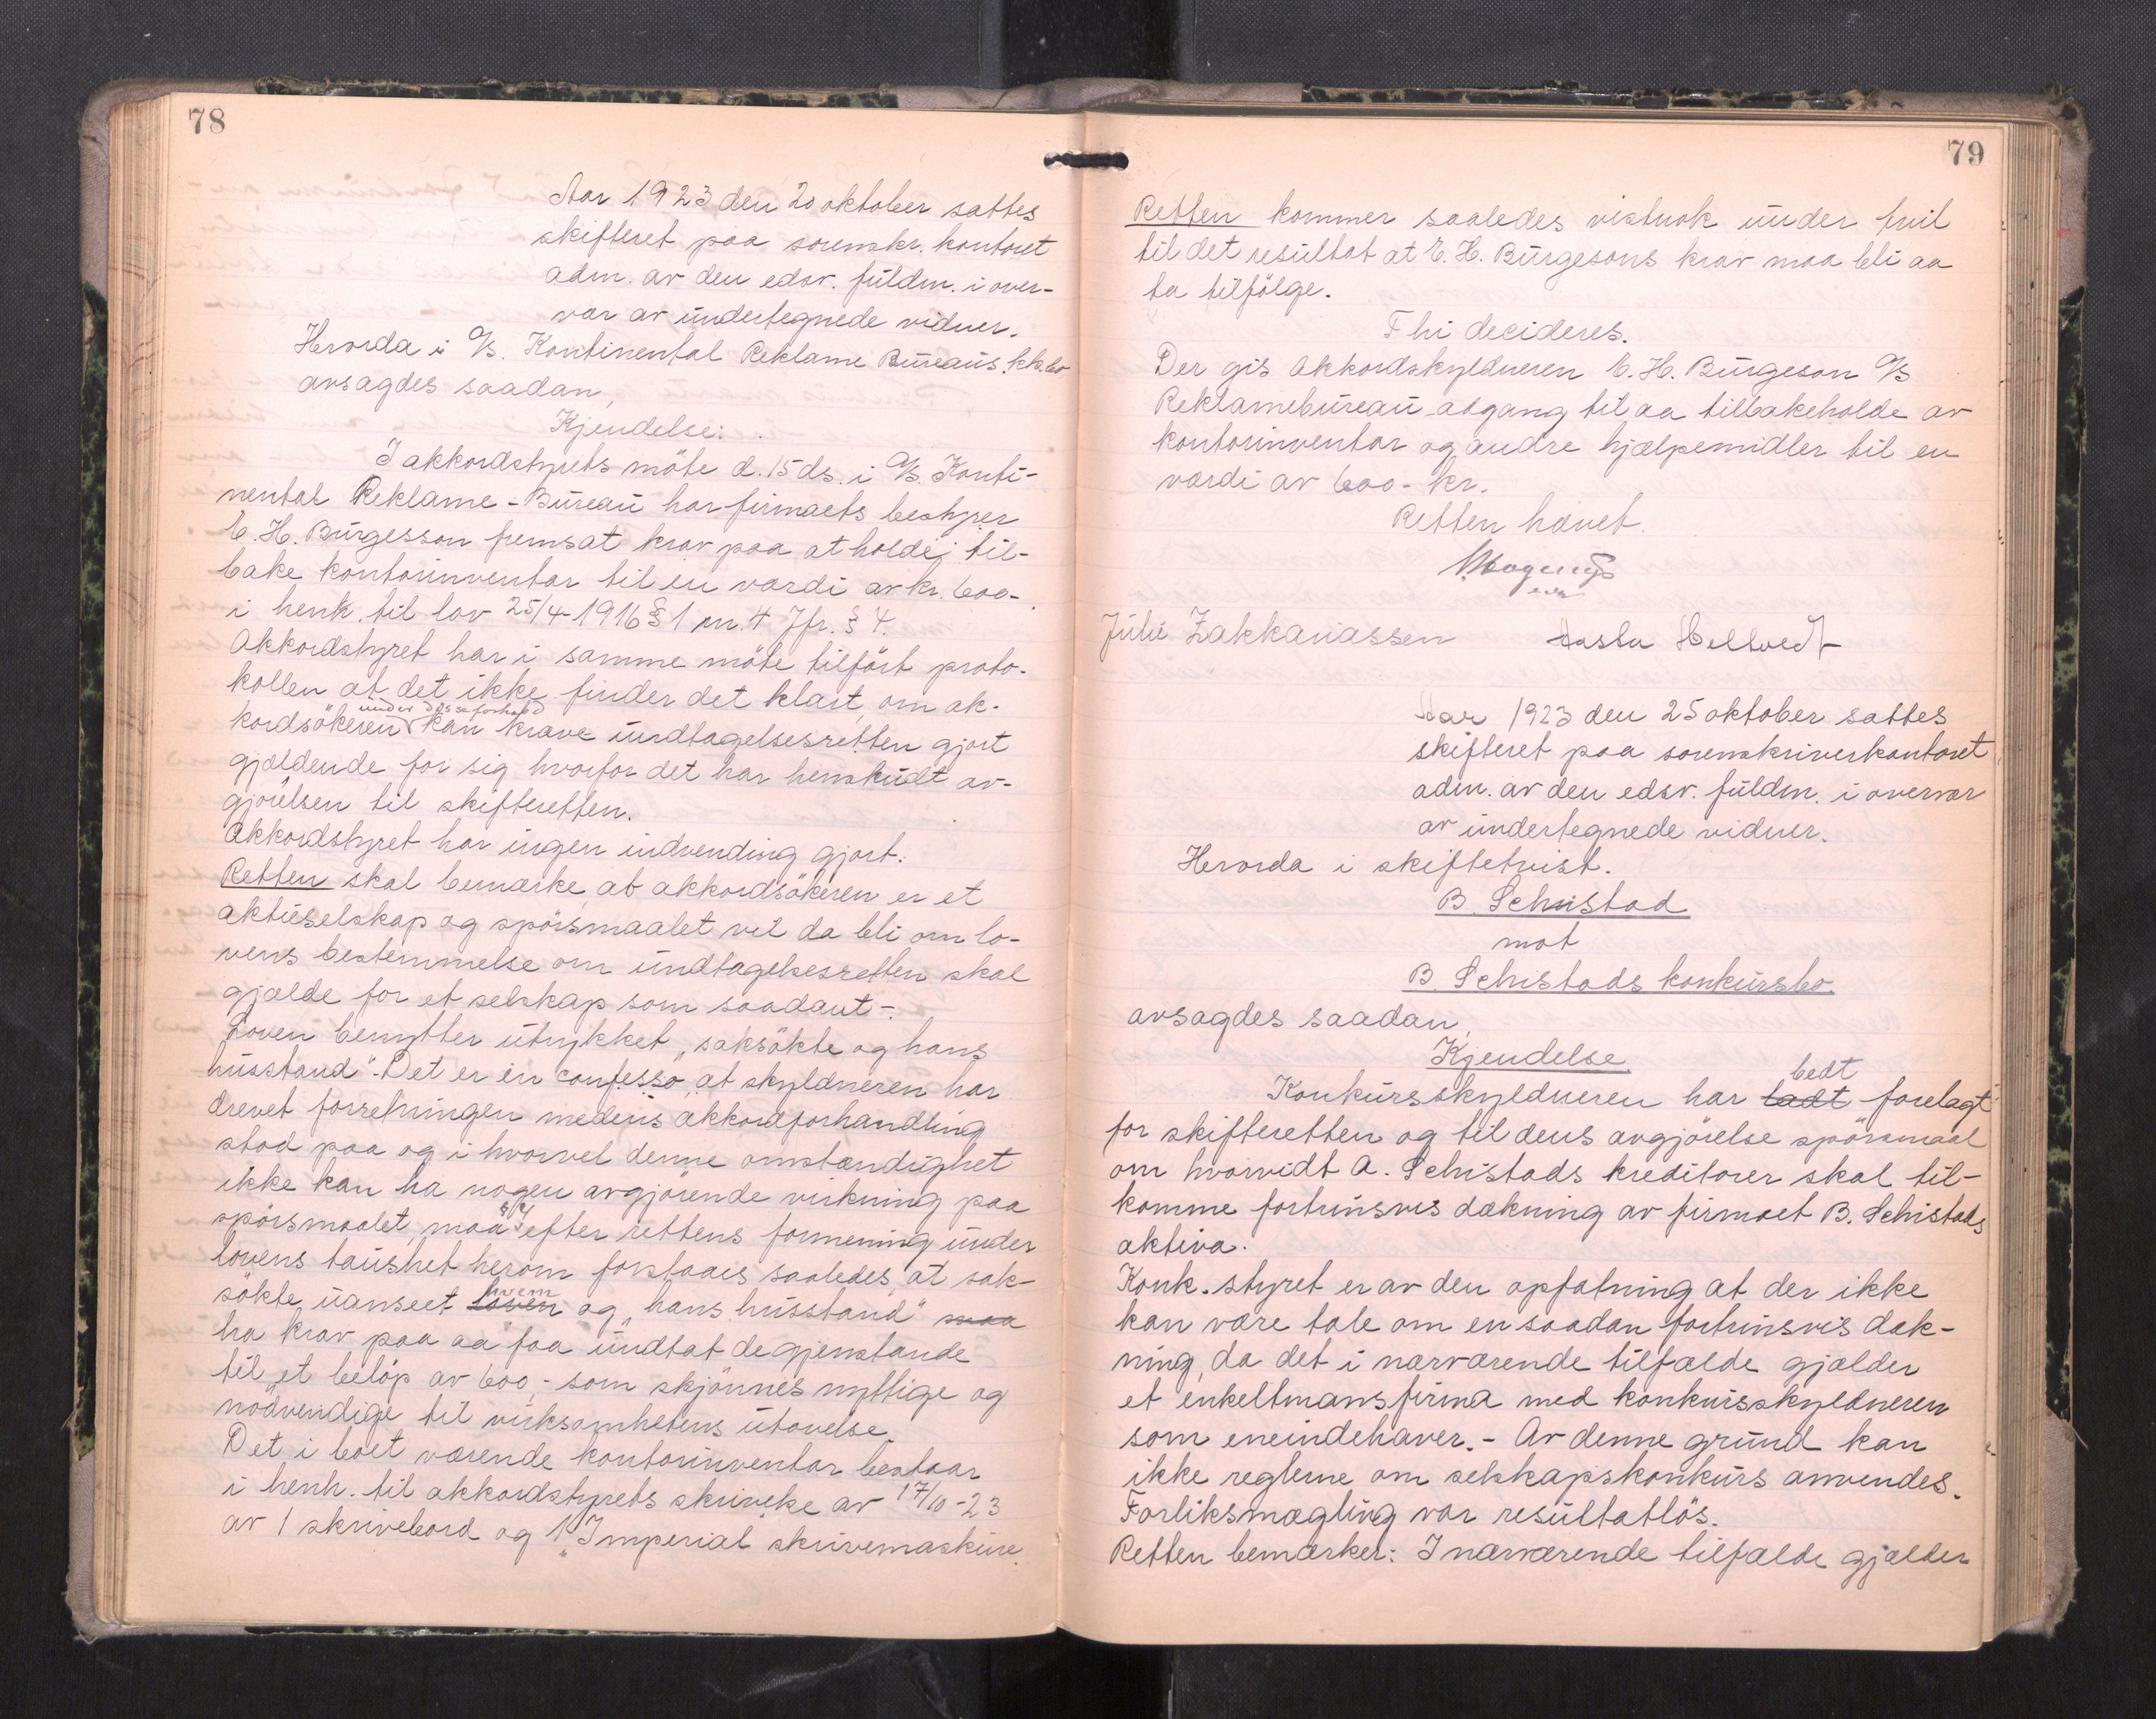 78
Aar 1923 den 20 oktober sattes
skifteret paa sorenskr. kontoret
adm. av den edsv. fuldm. i over-
vær av undertegnede vidner.
Hervorda i A/S. Kontinental Reklame Bureaus kk.bo
avsagdes saadan,
Kjendelse:
I akkordstyrets möte d. 15 ds. i A/S. Konti-
nental Reklame-Bureau har firmaets bestyrer
C. H. Burgesson fremsat krav paa at holdej til-
bake kontorinventar til en værdi av kr. 600-
i henh. til lov 25/4-1916 § 1 nr. 4 Jfr. § 4.
Akkordstyret har i samme möte tilfört proto-
kollen at det ikke finder det klart, om ak-
under disse forhold
kordsökeren kan kræve undtagelsesretten gjort
gjældende for sig hvorfor det har henskudt av-
gjörelsen til skifteretten.
Akkordstyret har ingen indvending gjort.
Retten skal bemærke, at akkordsökeren er et
aktieselskap og spörsmaalet vil da bli om lo-
vens bestemmelse om undtagelsesretten skal
gjælde for et selskap som saadant-.
Loven benytter utrykket „saksökte og hans
husstand". Det er in confesso, at skyldneren har
drevet forretningen medens akkordforhandling
stod paa og i hvorvel denne omstændighet
ikke kan ha nogen avgjörende virkning paa
spörsmaalet, maa § 4 efter rettens formening under
lovens taushet herom forstaaes saaledes, at sak-
hvem
sökte uanseet loven og „hans husstand" maa
ha krav paa aa faa undtat de gjenstande
til et belöp av 600,- som skjönnes nyttige og
nödvendige til virksomhetens utövelse.
Det i boet værende kontorinventar bestaar
i henh. til akkordstyrets skrivelse av 17/10-23
av 1 skrivebord og 1 „Imperial skrivemaskine.
79
Retten kommer saaledes vistnok under tvil
til det resultat at C. H. Burgesons krav maa bli aa
ta tilfölge.
Thi decideres.
Der gis Akkordskyldneren C. H. Burgeson A/S
Reklamebureau adgang til aa tilbakeholde av
kontorinventar og andre hjælpemidler til en
værdi av 600- kr.
Retten hævet.
Julie Zakkariassen Aslu Heltvedt
Aar 1923 den 25 oktober sattes
skifteret paa sorenskriverkontoret
adm. av den edsv. fuldm. i overvær
av undertegnede vidner.
Hervorda i skiftetvist.
B. Schistad
mot
B. Schistads konkursbo.
avsagdes saadan,
Kjendelse.
bedt
Konkursskyldneren har ladt forelagt
for skifteretten og til dens avgjörelse spörsmaal
om hvorvidt A. Schistads kreditorer skal til-
komme fortrinsvis dækning av firmaet B. Schistads
aktiva.
Konk. styret er av den opfatning at der ikke
kan være tale om en saadan fortrinsvis dæk-
ning, da det i nærværende tilfælde gjælder
et enkeltmansfirma med konkursskyldneren
som eneindehaver.- Av denne grund kan
ikke reglerne om selskapskonkurs anvendes.
Forliksmægling var resultatlös.
Retten bemærker: I nærværende tilfælde gjælder